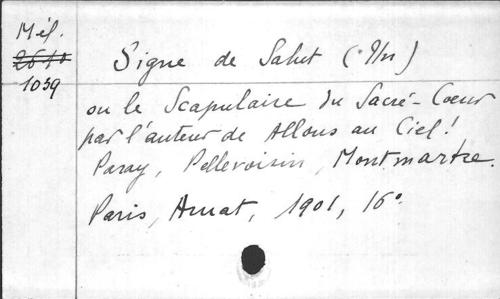 Mél.
2610
1039
Signe de Salut (Un)
ou le Scapulaire du Sacré-Coeur
par l'auteur de Allons au Ciel!
Paray, Pellevoisin, Montmartre.
Paris, Amat, 1901, 16°